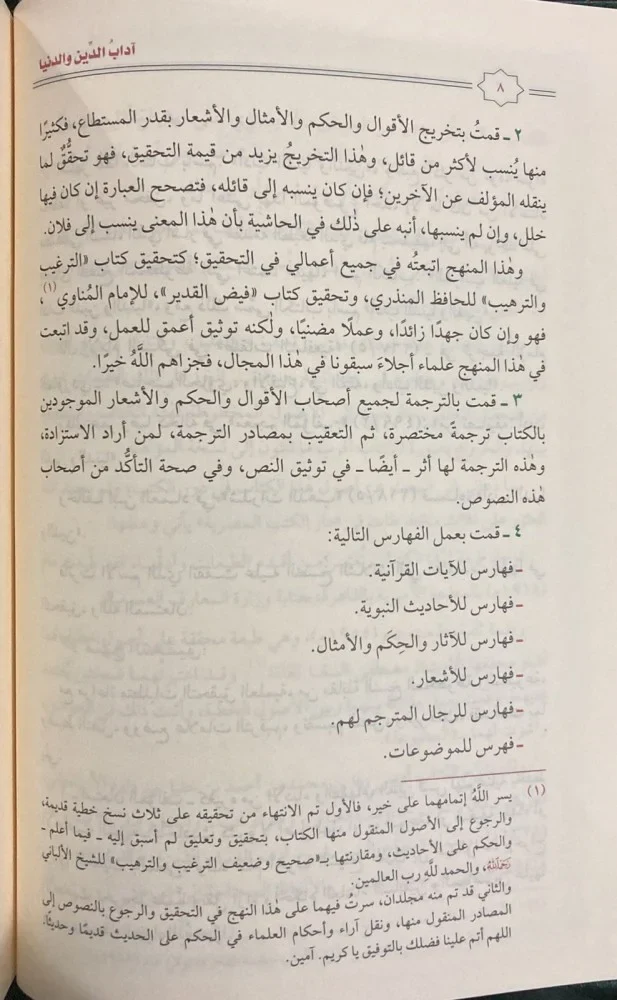 آدابُ الدِّين والدنيا
٨
٢ ـ قمتُ بتخريج الأقوال والحكم والأمثال والأشعار بقدر المستطاع، فكثيرًا
منها يُنسب لأكثر من قائل، وهٰذا التخريجُ يزيد من قيمة التحقيق، فهو تحقُّقٌ لما
ينقله المؤلف عن الآخرين؛ فإن كان ينسبه إلى قائله، فتصحح العبارة إن كان فيها
خلل، وإن لم ينسبها، أنبه على ذٰلك في الحاشية بأن هٰذا المعنى ينسب إلى فلان.
وهٰذا المنهج اتبعتُه في جميع أعمالي في التحقيق؛ كتحقيق كتاب «الترغيب
والترهيب» للحافظ المنذري، وتحقيق كتاب «فيض القدير»، للإمام المُناوي(١)،
فهو وإن كان جهدًا زائدًا، وعملًا مضنيًا، ولٰكنه توثيق أعمق للعمل، وقد اتبعت
في هٰذا المنهج علماء أجلاءَ سبقونا في هٰذا المجال، فجزاهم اللَّهُ خيرًا.
٣ ـ قمت بالترجمة لجميع أصحاب الأقوال والحكم والأشعار الموجودين
بالكتاب ترجمةً مختصرة، ثم التعقيب بمصادر الترجمة، لمن أراد الاستزادة،
وهذه الترجمة لها أثر ـ أيضًا ـ في توثيق النص، وفي صحة التأكُّد من أصحاب
هٰذه النصوص.
٤ ـ قمت بعمل الفهارس التالية:
ـ فهارس للآيات القرآنية.
ـ فهارس للأحاديث النبوية.
ـ فهارس للآثار والحِكَم والأمثال.
ـ فهارس للأشعار.
ـ فهارس للرجال المترجم لهم.
ـ فهرس للموضوعات.
(١) يسر اللَّهُ إتمامهما على خير، فالأول تم الانتهاء من تحقيقه على ثلاث نسخ خطية قديمة،
والرجوع إلى الأصول المنقول منها الكتاب، بتحقيق وتعليق لم أسبق إليه ـ فيما أعلم ـ
والحكم على الأحاديث، ومقارنتها بـ«صحيح وضعيف الترغيب والترهيب» للشيخ الألباني
رَحِمَهُ اللَّهُ، والحمد للَّهِ رب العالمين.
والثاني قد تم منه مجلدان، سرتُ فيهما على هٰذا النهج في التحقيق والرجوع بالنصوص إلى
المصادر المنقول منها، ونقل آراء وأحكام العلماء في الحكم على الحديث قديمًا وحديثًا.
اللهم أتم علينا فضلك بالتوفيق يا كريم. آمين.